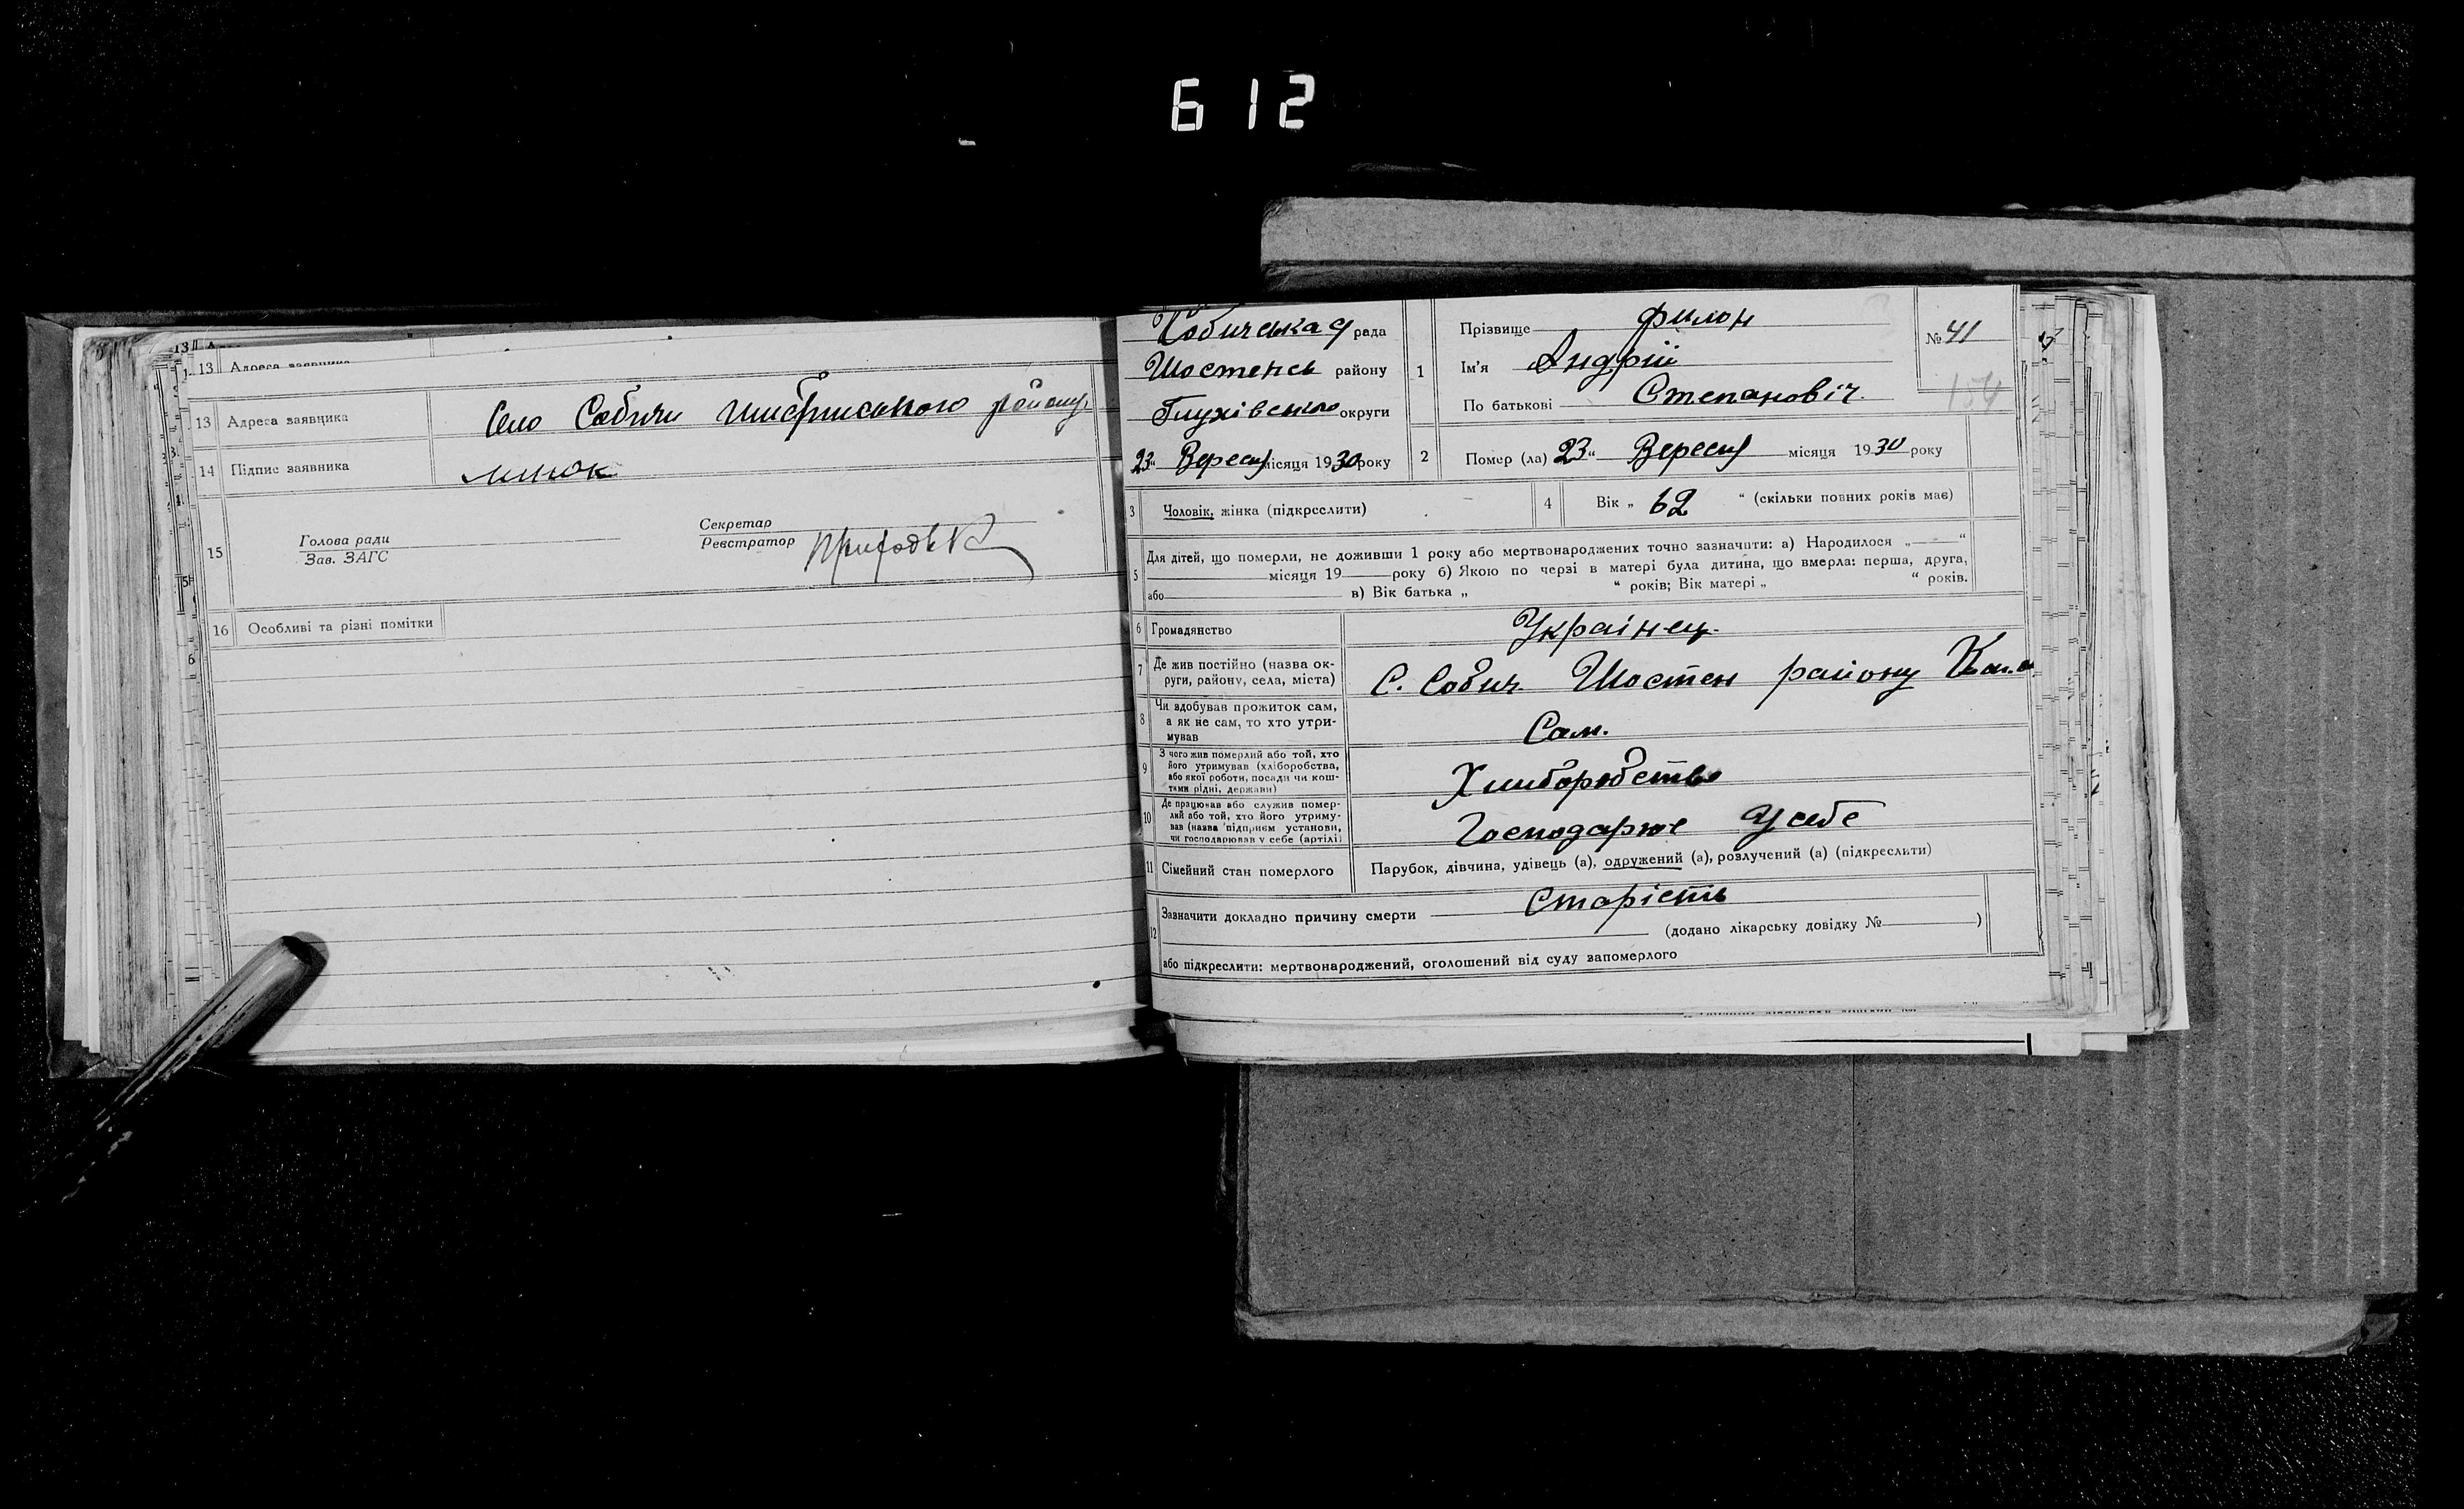 612
13 Адреса заявника
13 Адреса заявника Село Собичи района
14 Підпис заявника
15 Голова ради
Зав. ЗАГС
Секретар
Реєстратор
16 Особливі та різні помітки
Собичська рада
Шостенсь району
Глухівської округи
23 " Вересня місяця 1930 року
1 Прізвище Филон
Ім'я Андрій
По батькові Степановіч.
№ 41
154
2 Помер (ла) 23 " Вересня місяця 1930 року
3 Чоловік, жінка (підкреслити)
4 Вік „ 62 " (скільки повних років має)
5 Для дітей, що померли, не доживши 1 року або мертвонароджених точно зазначити: а) Народилося „ "
місяця 19 року б) Якою по черзі в матері була дитина, що вмерла: перша, друга,
або в) Вік батька „ " років; Вік матері „ " років.
6 Громадянство Украінец.
7 Де жив постійно (назва округи, району, села, міста) С. Собич Шостен району
8 Чи здобував прожиток сам,
а як не сам, то хто утримував
Сам.
9 З чого жив померлий або той, хто
його утримував (хліборобства,
або якої роботи, посади чи коштами рідні, держави)
Хлиборобство
10 Де працював або служив померлий або той, хто його утримував (назва підприєм установи,
чи господарював у себе (артілі)
Господарює У себе
11 Сімейний стан померлого Парубок, дівчина, удівець (а), одружений (а), розлучений (а) (підкреслити)
12 Зазначити докладно причину смерти Старість
(додано лікарську довідку № )
або підкреслити: мертвонароджений, оголошений від суду запомерлого